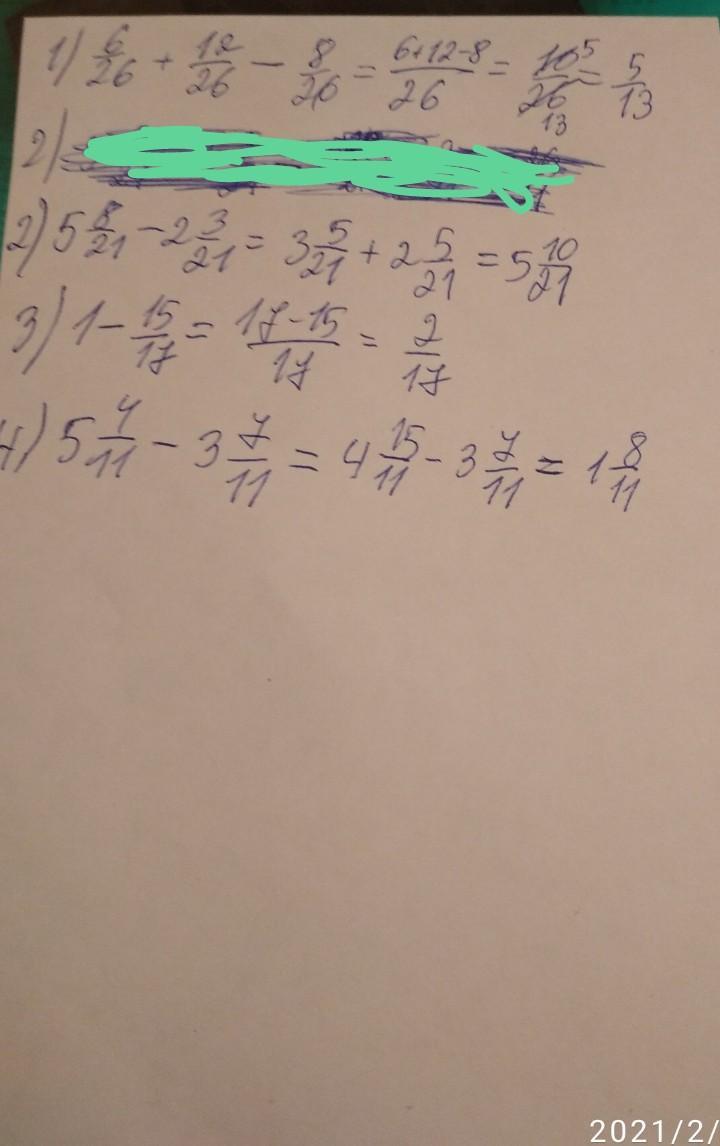 1) 6/26 + 12/26 − 8/26 = 6+12−8/26 = 10/26 5 13 = 5/13
2)
2) 5 8/21 − 2 3/21 = 3 5/21 + 2 5/21 = 5 10/21
3) 1 − 15/17 = 17−15/17 = 2/17
4) 5 4/11 − 3 7/11 = 4 15/11 − 3 7/11 = 1 8/11
2021/2/